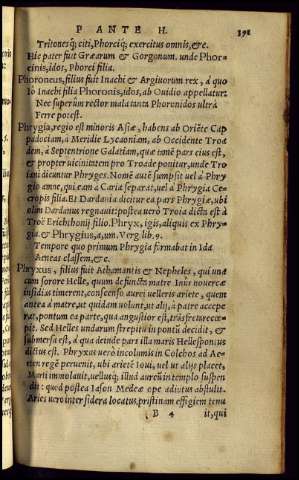 P ANTE H. 191
Tritonesq́; citi, Phorciq́; exercitus omnis, &c.
Hic pater fuit Græarum & Gorgonum. unde Phor-
cinis, idos, Phorci filia.
Phoroneus, filius fuit Inachi & Argiuorum rex, à quo
Io Inachi filia Phoronis, idos, ab Ouidio appellatur:
Nec superûm rector mala tanta Phoronidos ultrà
Ferre potest.
Phrygia, regio est minoris Asiæ, habens ab Oriẽte Cap
padociam, à Meridie Lycaoniam, ab Occidente Troa
dem, à Septentrione Galatiam, quæ est,
& propter uicinitatem pro Troade ponitur, unde Tro
iani dicuntur Phryges. Nomẽ autẽ sumpsit uel à Phry
gio amne, qui eam à Caria separat, uel à Phrygia Ce-
cropis filia. Et Dardania dicitur ea pars Phrygiæ, ubi
olim Dardanus regnauit: postea uerò Troia dicta est à
Troë Erichthonij filio. Phryx, igis, aliquis ex Phry-
gia, & Phrygius, a, um. Verg. lib. 9.
Tempore quo primum Phrygia formabat in Ida
Aeneas classem, &c.
Phryxus, filius fuit Athamantis & Nepheles, qui unà
cum sorore Helle, quum defunctã matre Inûs nouercæ
insidias timerent, conscenso aurei uelleris ariete, quem
antea à matre, ut quidam uolunt, ut alij, à patre accepe
rat, pontum ea parte, qua angustior est, trãsfretare cœ-
pit. Sed Helles undarum strepitu in pontũ decidit, &
submersa est, à qua deinde pars illa maris Hellesponsus
dictus est. Phryxus uerò incolumis in Colchos ad Ae-
eten regẽ peruenit, ubi arietẽ Ioui, uel ut alijs placet,
Marti immolauit, uellusq́; illud aureũ in templo suspen
dit: quod pòstea Iason Medeæ ope adiutus abstulit.
Aries uerò inter sidera locatus, pristinam effigiem tenu
B 4 it, qui